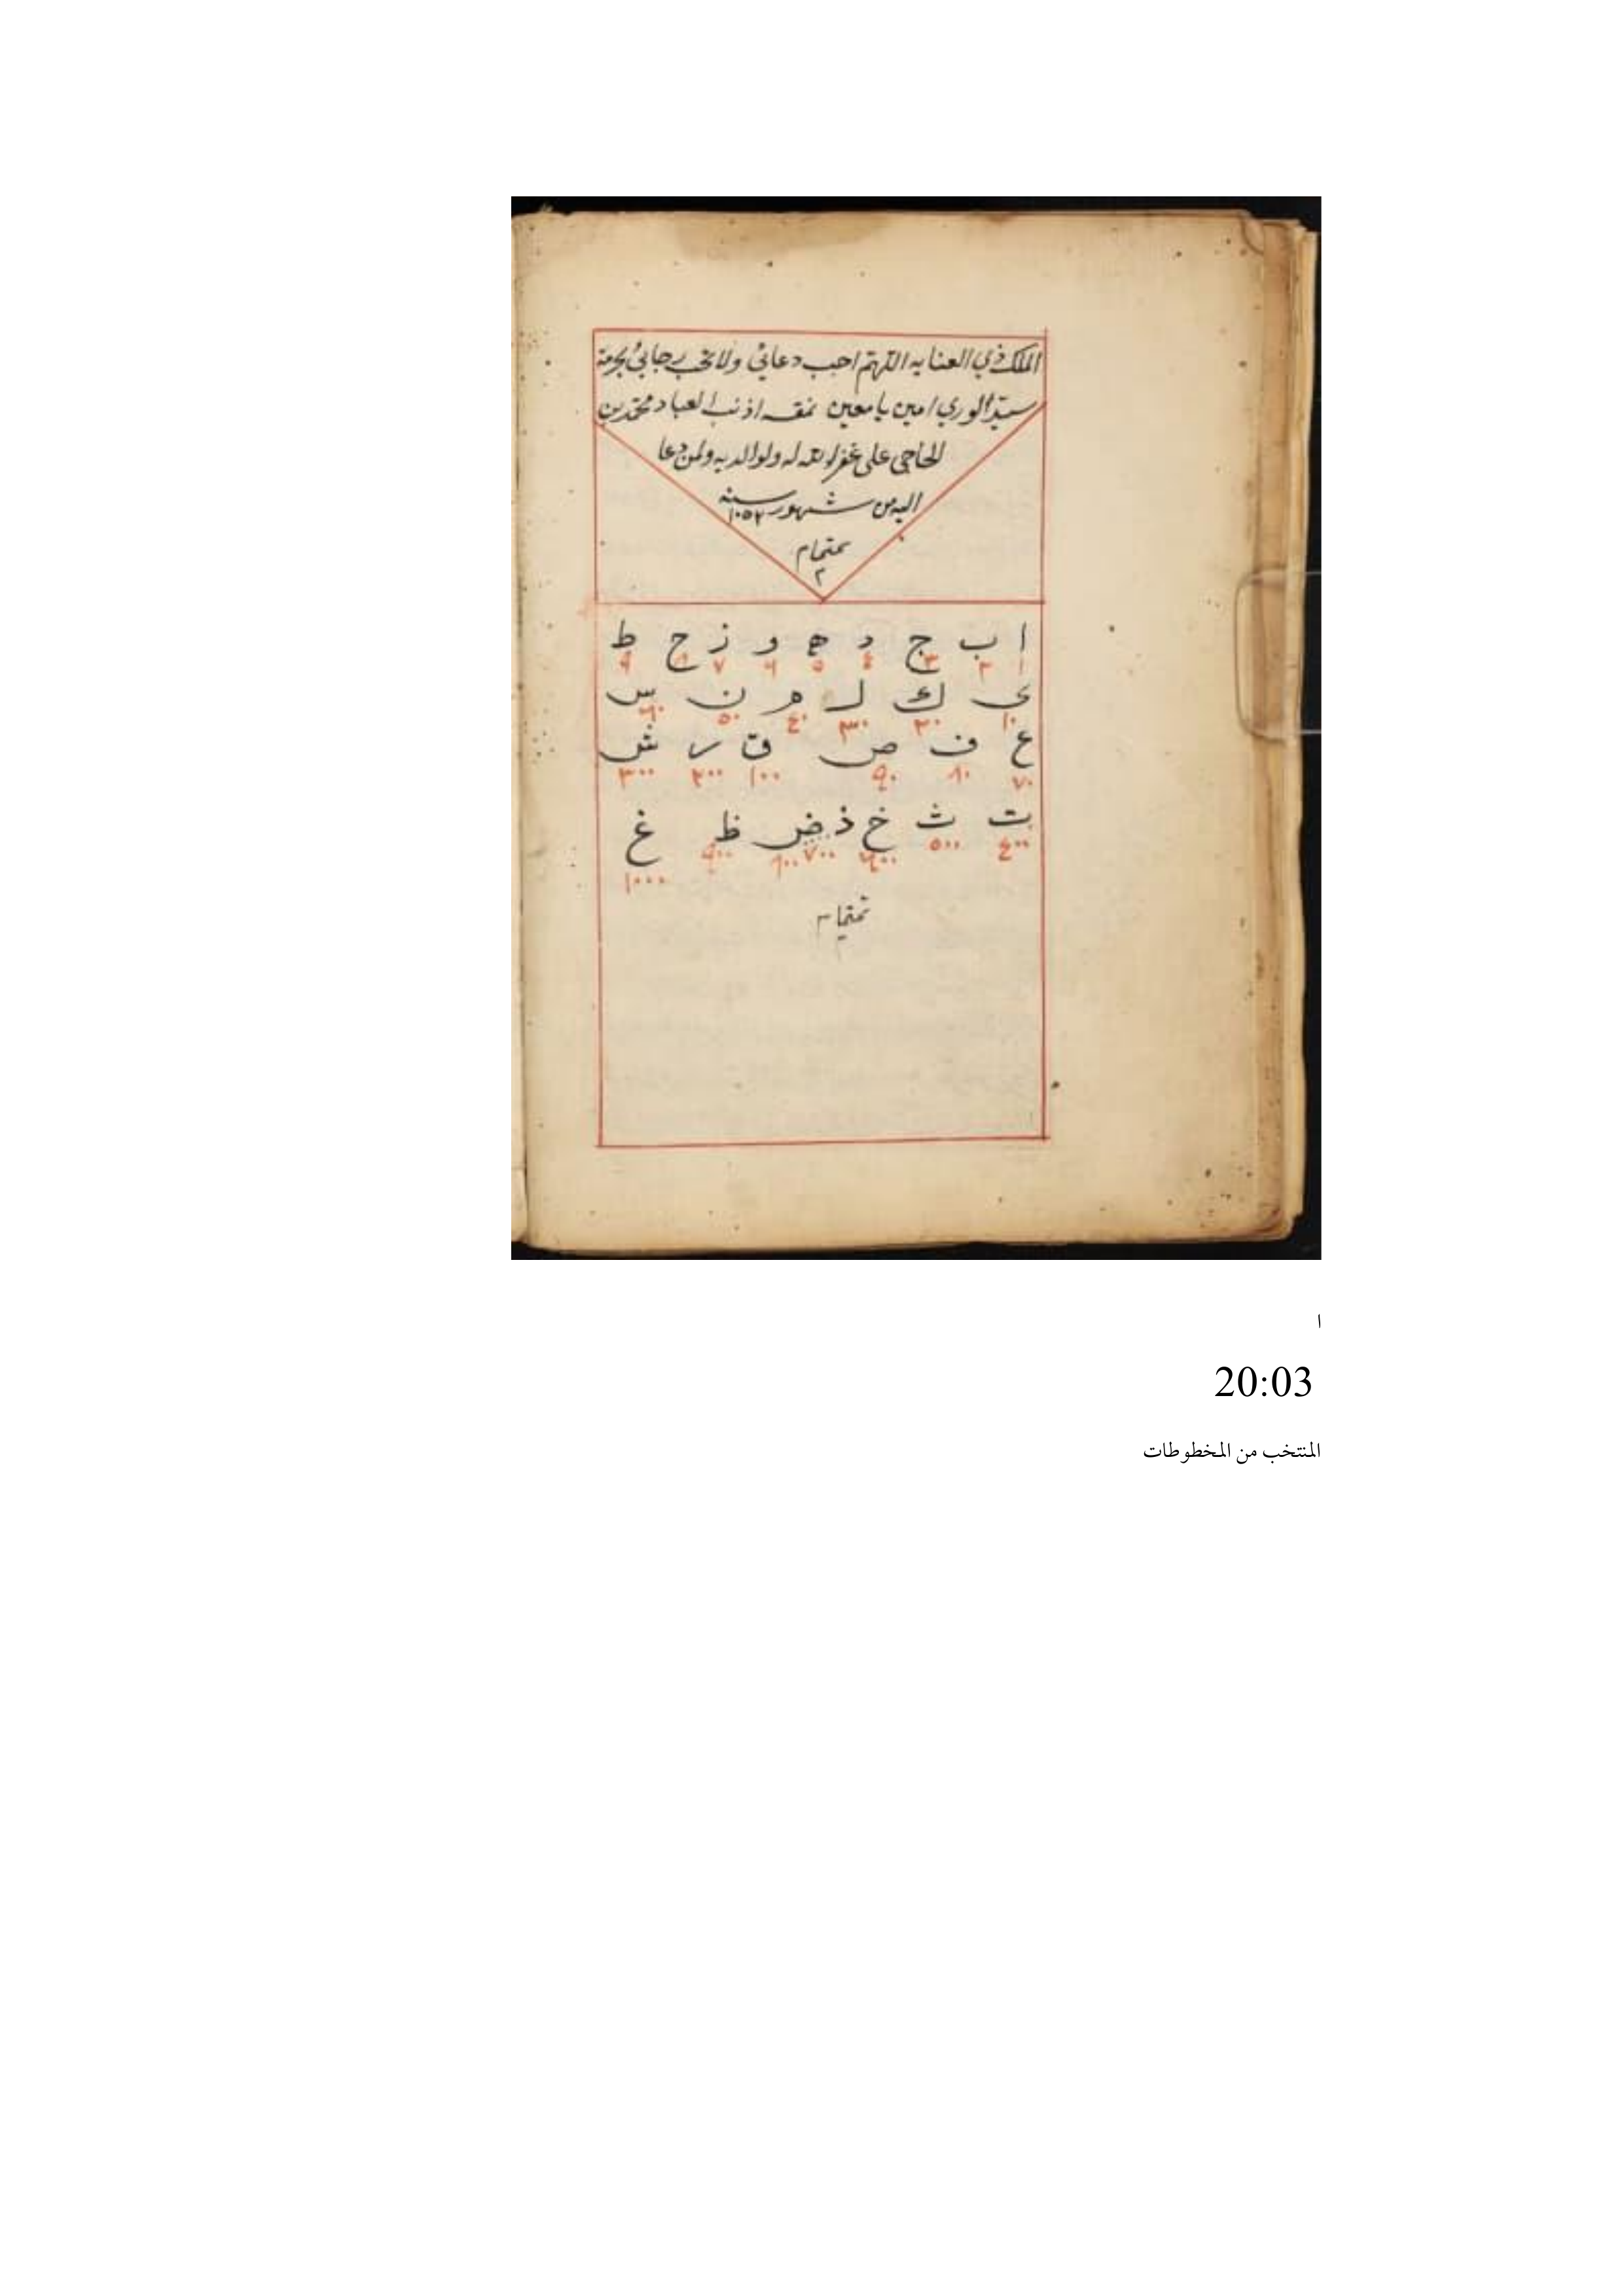 الملك ذي العنايه اللهم اجب دعائي ولا تخب رجائي بحرمة
سيد الوري امين يا معين نمقه اذنب العباد محمد بن
الحاجي علي غفر الله له ولوالديه ولمن دعا
اليه من شهور سنة ١٠٥٢
ا ب ج د ه و ز ح ط
١ ٢ ٣ ٤ ٥ ٦ ٧ ٨ ٩
ى ك ل م ن س
١٠ ٢٠ ٣٠ ٤٠ ٥٠ ٦٠
ع ف ص ق ر ش
٧٠ ٨٠ ٩٠ ١٠٠ ٢٠٠ ٣٠٠
ت ث خ ذ ض ظ غ
٤٠٠ ٥٠٠ ٦٠٠ ٧٠٠ ٨٠٠ ٩٠٠ ١٠٠٠
ا
20:03
المنتخب من المخطوطات